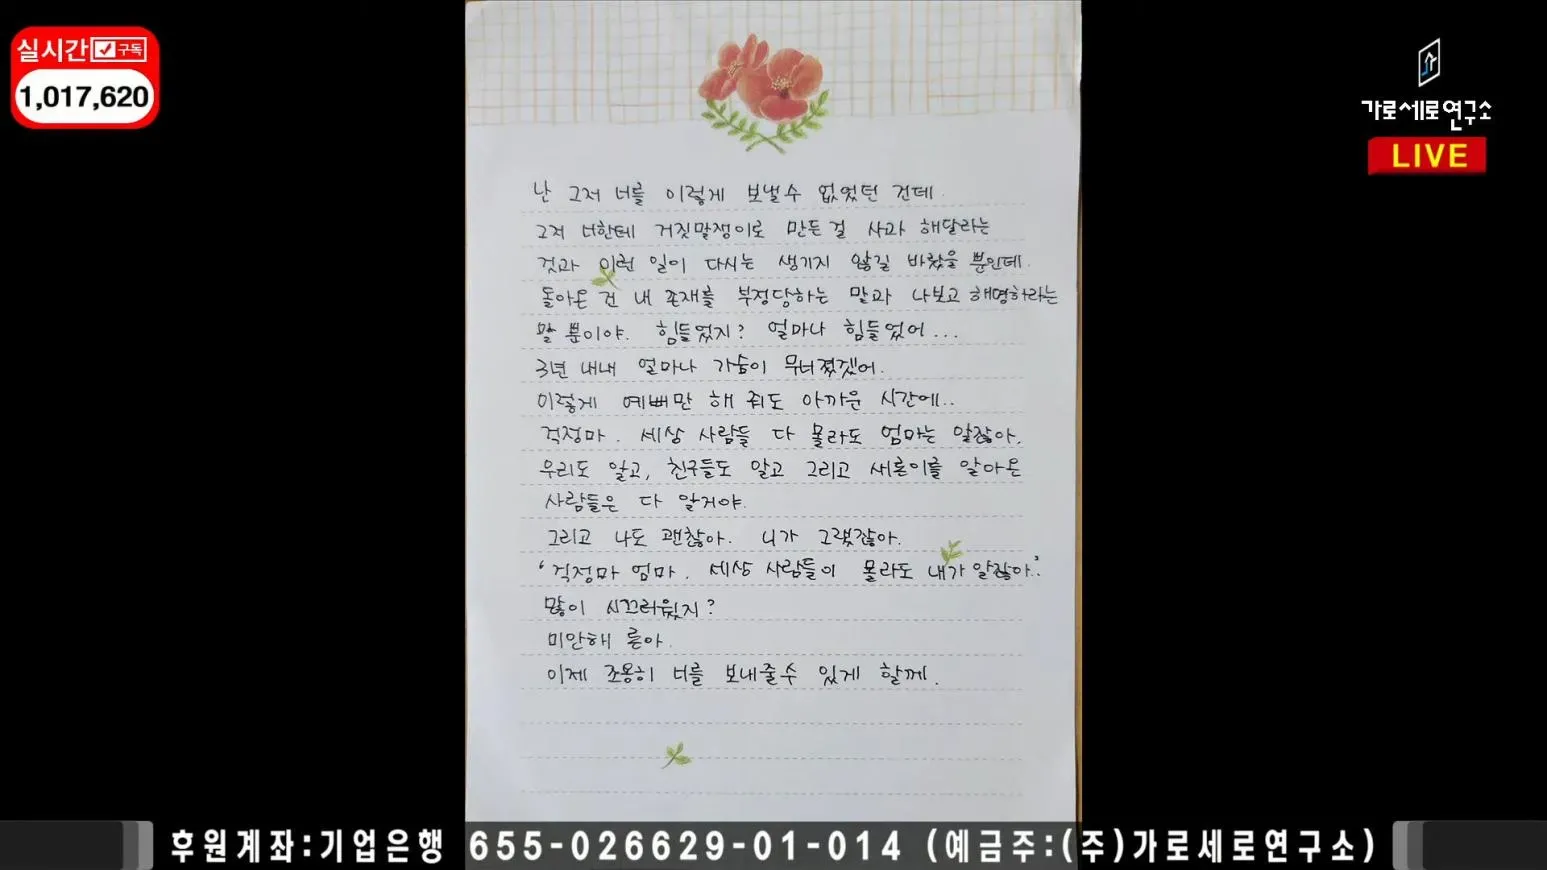 실시간 구독
1,017,620
가로세로연구소
LIVE
난 그저 너를 이렇게 보낼수 없었던 건데.
그저 너한테 거짓말쟁이로 만든걸 사과 해달라는
것과 이런 일이 다시는 생기지 않길 바랐을 뿐인데.
돌아온 건 내 존재를 부정당하는 말과 나보고 해명하라는
말 뿐이야. 힘들었지? 얼마나 힘들었어...
3년 내내 얼마나 가슴이 무너졌겠어.
이렇게 예뻐만 해 줘도 아까운 시간에..
걱정마. 세상 사람들 다 몰라도 엄마는 알잖아.
우리도 알고, 친구들도 알고 그리고 새론이를 알아온
사람들은 다 알거야.
그리고 나도 괜찮아. 니가 그랬잖아.
'걱정마 엄마. 세상 사람들이 몰라도 내가 알잖아.'
많이 시끄러웠지?
미안해 론아.
이제 조용히 너를 보내줄수 있게 할께.
후원계좌:기업은행 655-026629-01-014 (예금주:(주)가로세로연구소)